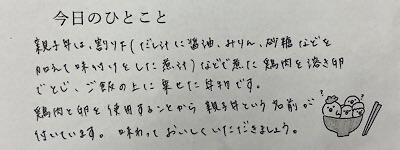 今日のひとこと
親子丼は、割り下(だし汁に醤油、みりん、砂糖などを
加えて味付けをした煮汁)などで煮た鶏肉を溶き卵
でとじ、ご飯の上に乗せた丼物です。
鶏肉と卵を使用することから親子丼という名前が
付いています。味わっておいしくいただきましょう。